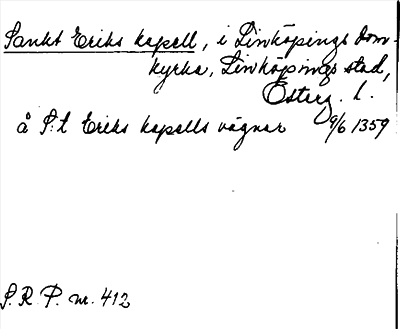 Sankt Eriks kapell, i Linköpings dom-
kyrka, Linköpings stad,
Österg. L.
å S:t Eriks kapells vägnar 9/6 1359
S.R.P. nr. 412